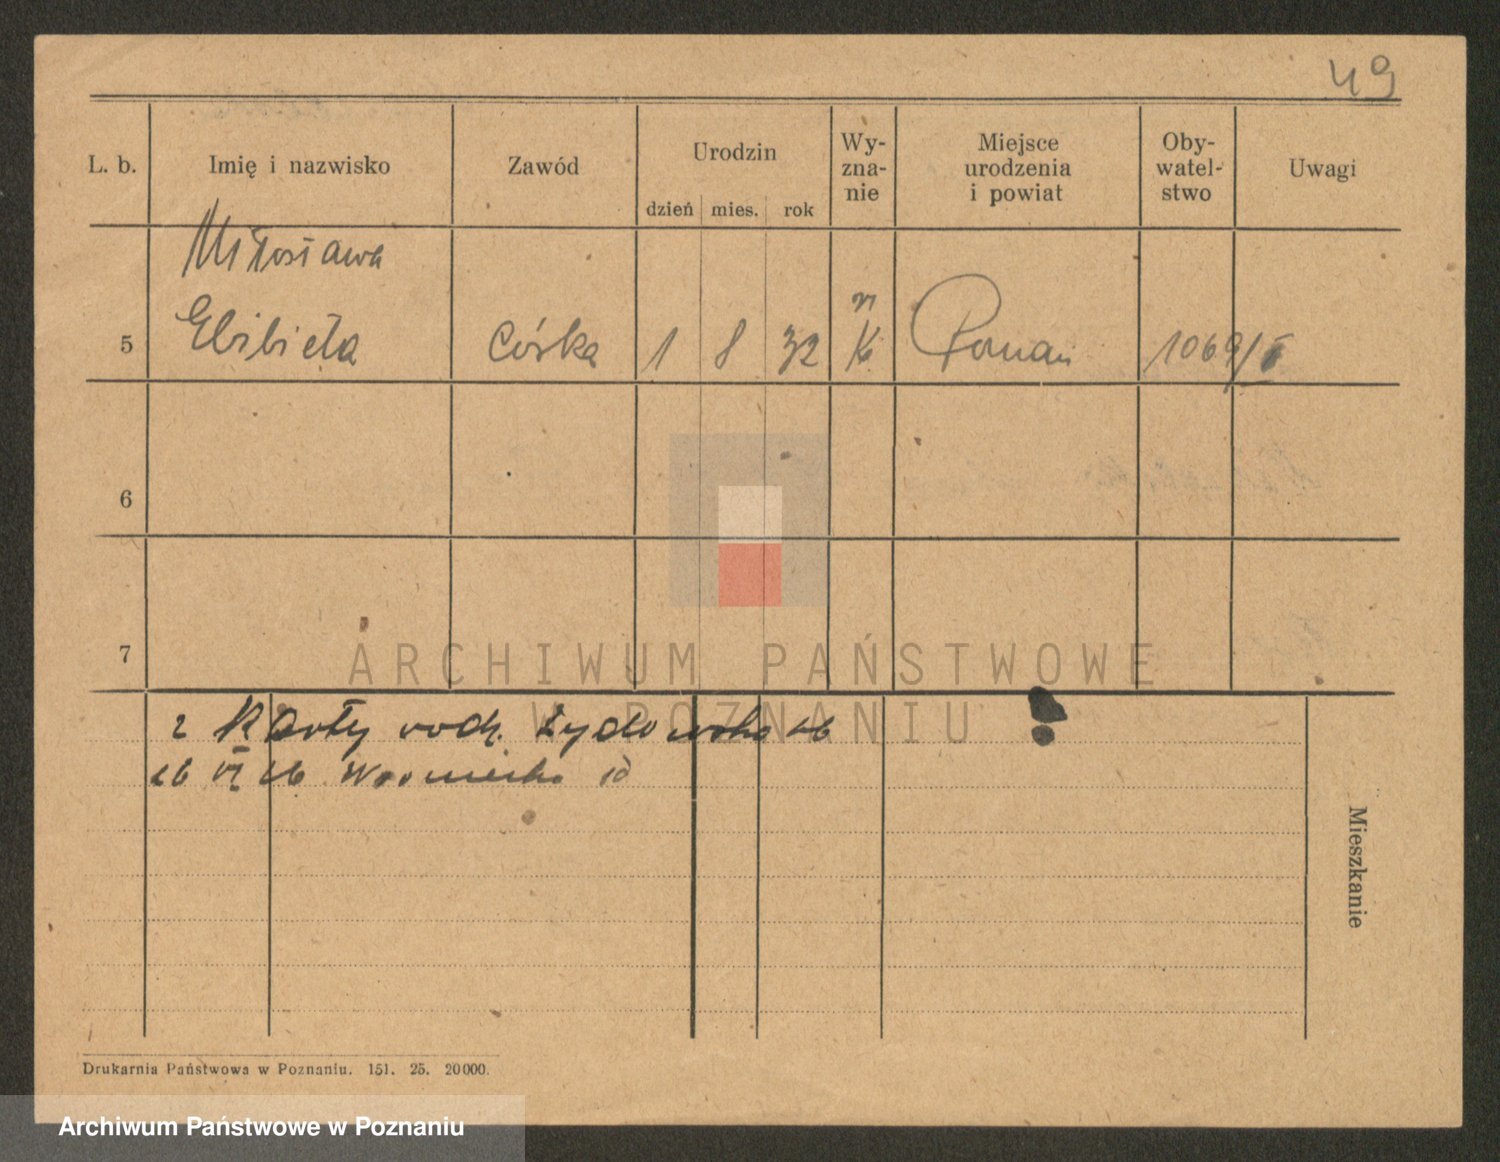 49
L. b. Imię i nazwisko Zawód Urodzin Wy- zna- nie Miejsce urodzenia i powiat Oby- watel- stwo Uwagi
dzień mies. rok
Mirosława
5 Elżbieta córka 1 8 32 rz K Poznań 1069/I
6
7
ARCHIWUM PAŃSTWOWE
W POZNANIU
z Karty rodz. Żydowska 26
26 VI 26 10
Mieszkanie
Drukarnia Państwowa w Poznaniu. 151. 25. 20000.
Archiwum Państwowe w Poznaniu